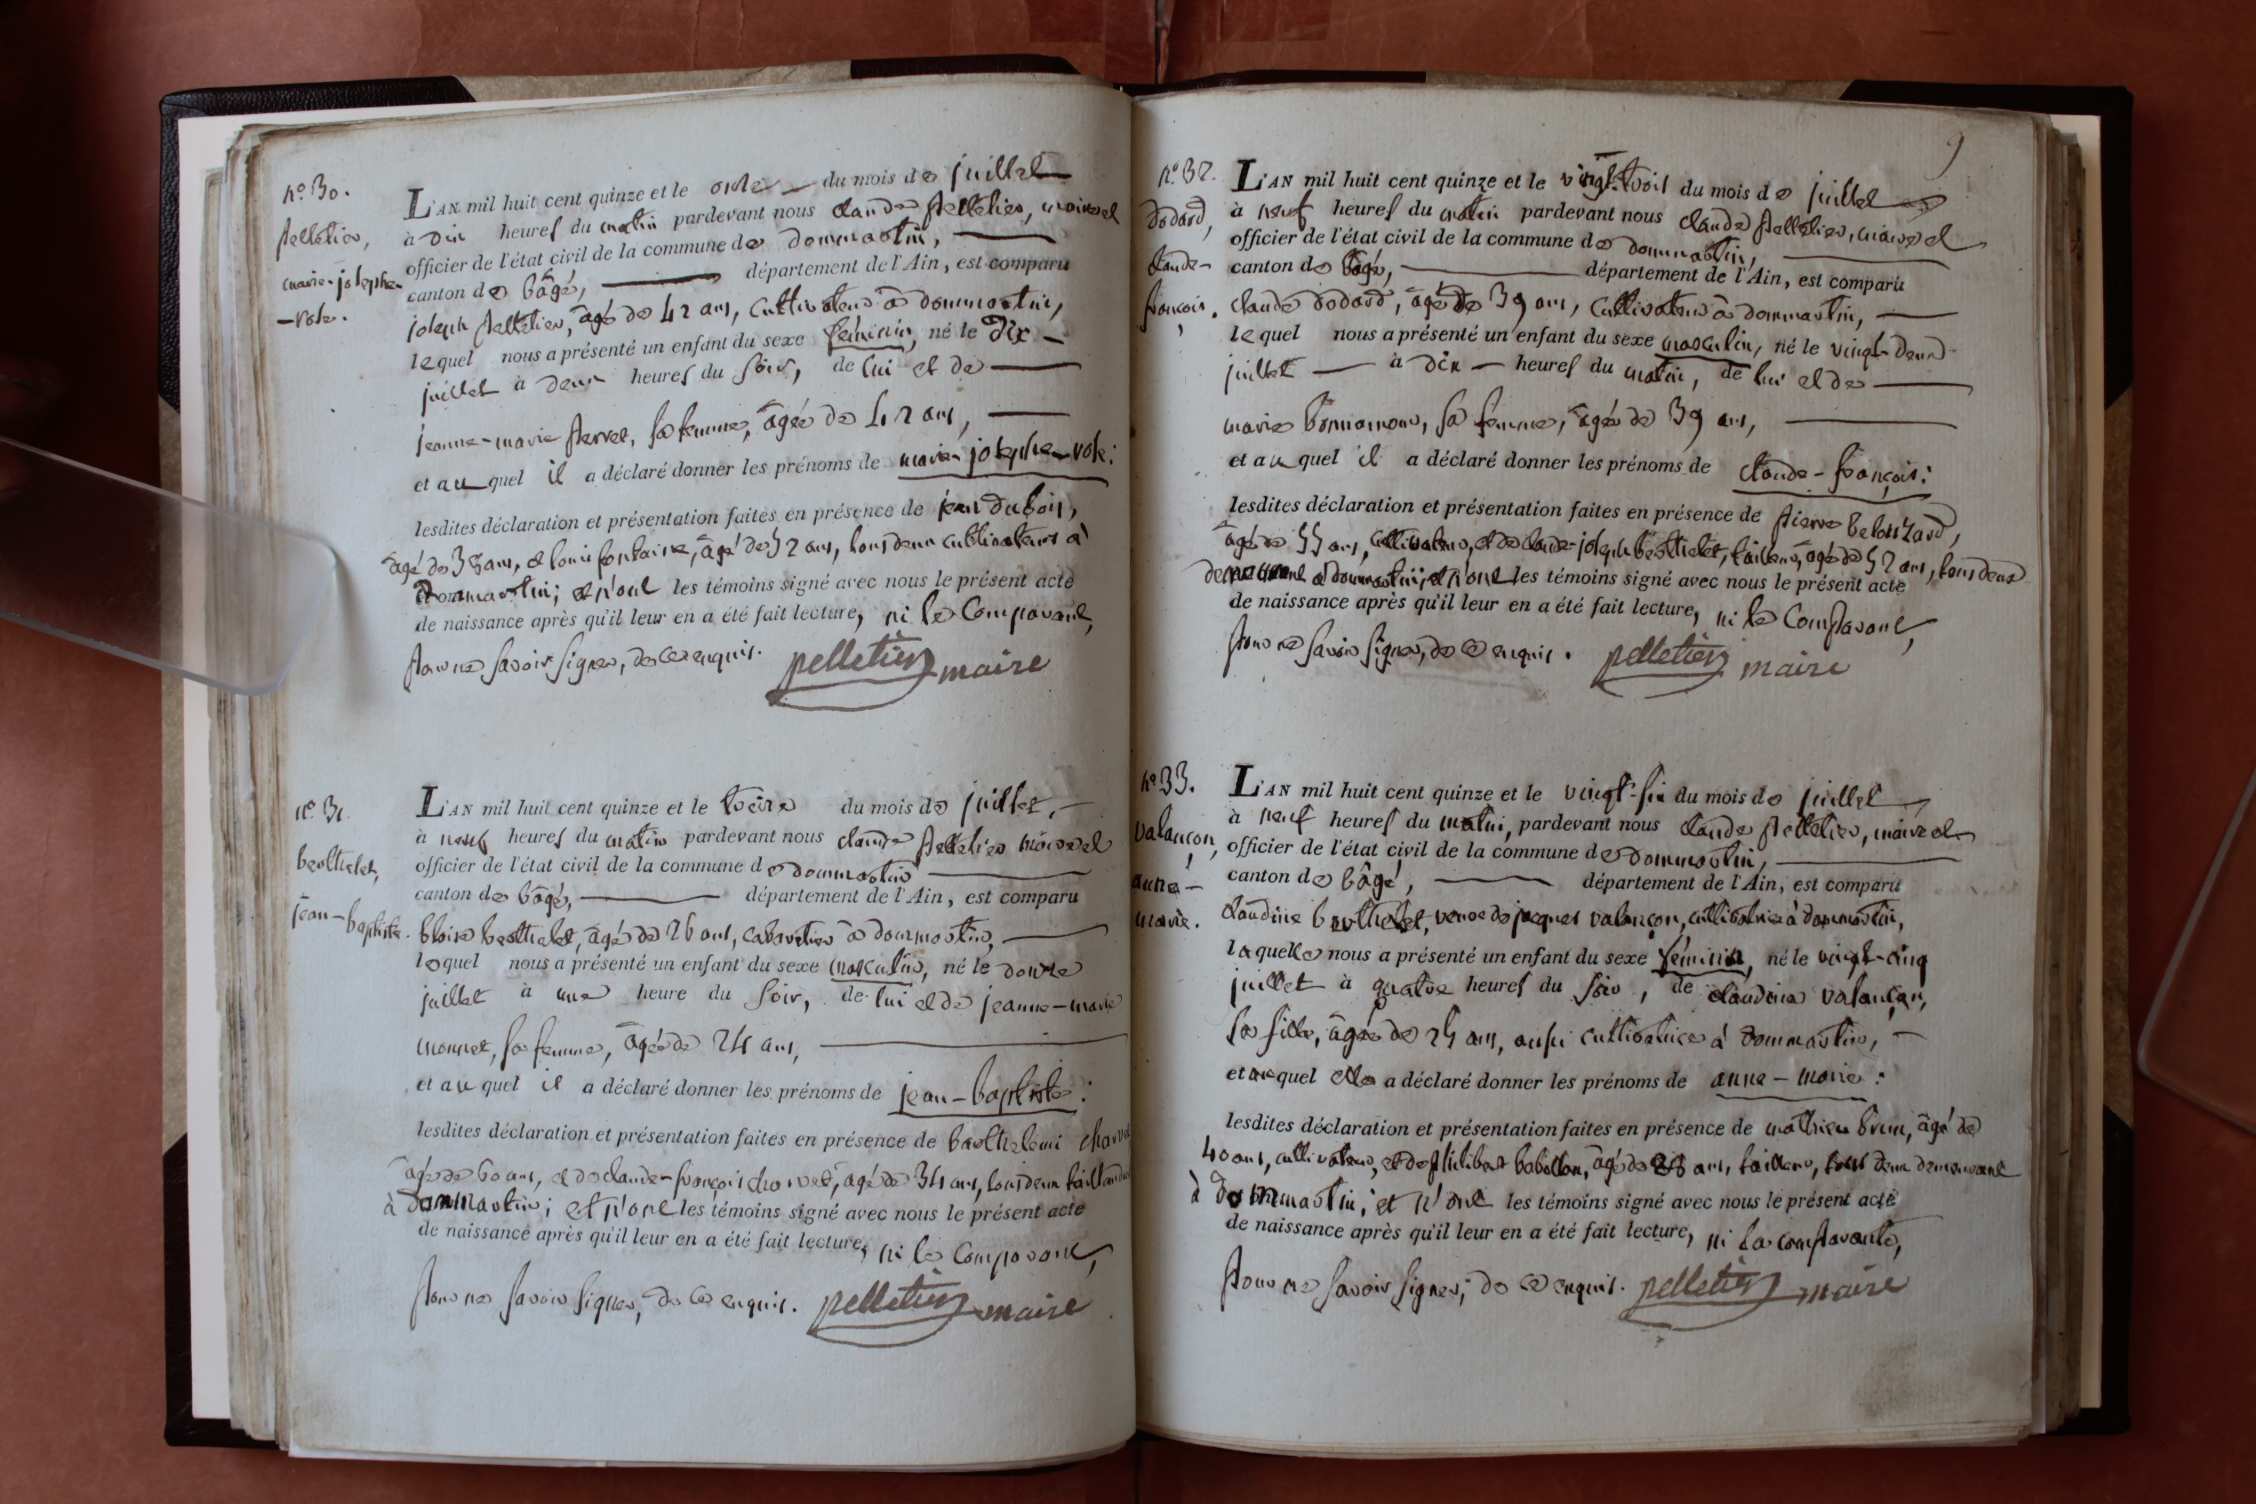 n.o 30.
pelletier,
marie-josephe-
-rose.
L'AN mil huit cent quinze et le onze du mois de juillet
à dix heures du matin pardevant nous claude pelletier, maire et
officier de l'état civil de la commune de dommartin,
canton de bâgé, département de l'Ain, est comparu
joseph pelletier, âgé de 42 ans, cultivateur à dommartin,
lequel nous a présenté un enfant du sexe féminin, né le dix
juillet à deux heures du soir, de lui et de
jeanne-marie perret, sa femme, âgée de 42 ans,
et auquel il a déclaré donner les prénoms de marie-josephe-rose:
lesdites déclaration et présentation faites en présence de jean dubois,
âgé de ans, et louis fontaine, âgé de 52 ans, tous deux cultivateurs à
dommartin; et n'ont les témoins signé avec nous le présent acte
de naissance après qu'il leur en a été fait lecture, ni le comparant,
pour ne savoir signer, de ce enquis. pelletier maire
n.o 31
berthelet,
jean-baptiste.
L'AN mil huit cent quinze et le treize du mois de juillet,
à neuf heures du matin pardevant nous claude pelletier maire et
officier de l'état civil de la commune de dommartin
canton de bâgé, département de l'Ain, est comparu
blaise berthelet, âgé de 26 ans, cabaretier à dommartin,
lequel nous a présenté un enfant du sexe masculin, né le douze
juillet à une heure du soir, de lui et de jeanne-marie
monnet, sa femme, âgée de 24 ans,
et auquel il a déclaré donner les prénoms de jean-baptiste:
lesdites déclaration et présentation faites en présence de barthelemi
âgé de 60 ans, et de claude-françois charvet, âgé de 34 ans, tous deux
à dommartin; et n'ont les témoins signé avec nous le présent acte
de naissance après qu'il leur en a été fait lecture, ni le comparant,
pour ne savoir signer, de ce enquis. pelletier maire
9
n.o 32.
dodard,
claude-
françois.
L'AN mil huit cent quinze et le vingt-trois du mois de juillet
à neuf heures du matin pardevant nous claude pelletier, maire et
officier de l'état civil de la commune de dommartin,
canton de bâgé, département de l'Ain, est comparu
claude dodard, âgé de 39 ans, cultivateur à dommartin,
lequel nous a présenté un enfant du sexe masculin, né le vingt-deux
juillet à dix heures du matin, de lui et de
marie sa femme, âgée de 39 ans,
et auquel il a déclaré donner les prénoms de claude-françois:
lesdites déclaration et présentation faites en présence de pierre
âgé de 55 ans, cultivateur, et de claude-joseph berthelet, tailleur, âgé de 52 ans, tous deux
demeurant à dommartin; et n'ont les témoins signé avec nous le présent acte
de naissance après qu'il leur en a été fait lecture, ni le comparant,
pour ne savoir signer, de ce enquis. pelletier maire
n.o 33.
valançon,
anne-
marie.
L'AN mil huit cent quinze et le vingt-six du mois de juillet
à neuf heures du matin, pardevant nous claude pelletier, maire et
officier de l'état civil de la commune de dommartin,
canton de bâgé, département de l'Ain, est comparu
claudine berthelet, veuve de jacques valançon, cultivatrice à dommartin,
laquelle nous a présenté un enfant du sexe féminin, né le vingt-cinq
juillet à quatre heures du soir, de claudine valançon,
sa fille, âgée de ans, aussi cultivatrice à dommartin,
et auquel elle a déclaré donner les prénoms de anne-marie:
lesdites déclaration et présentation faites en présence de mathieu brun, âgé de
40 ans, cultivateur, et de philibert âgé de ans, tailleur, tous deux demeurant
à dommartin; et n'ont les témoins signé avec nous le présent acte
de naissance après qu'il leur en a été fait lecture, ni la comparante,
pour ne savoir signer, de ce enquis. pelletier maire